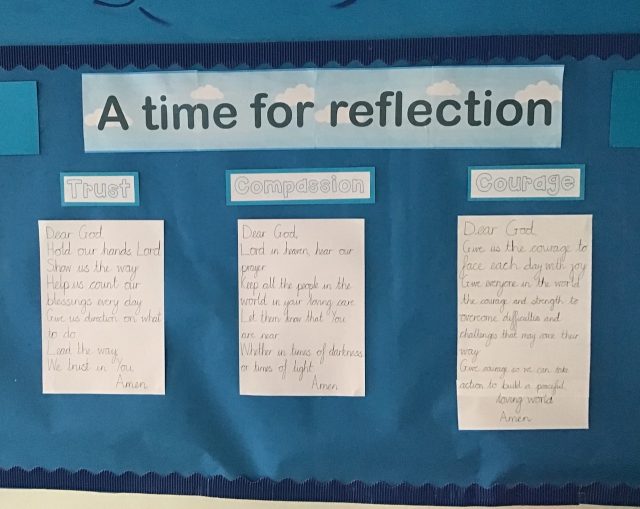 A time for reflection
Trust
Dear God
Hold our hands Lord
Show us the way
Help us count our
blessings every day
Give us direction on what
to do
Lead the way
We trust in You
Amen
Compassion
Dear God
Lord in heaven, hear our
prayer
Keep all the people in the
world in your loving care
Let them know that You
are near
Whether in times of darkness
or times of light
Amen
Courage
Dear God
Give us the courage to
face each day with joy
Give everyone in the world
the courage and strength to
overcome difficulties and
challenges that may come their
way
Give courage so we can take
action to build a peaceful
loving world
Amen